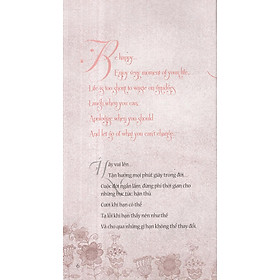 Be happy...
Enjoy every moment of your life...
Life is too short to waste on
Laugh when you can,
Apologize when you should
And let go of what you can't change...
Hãy vui lên...
Tận hưởng mọi phút giây trong đời...
Cuộc đời ngắn lắm, đừng phí thời gian cho
những bực tức hận thù.
Cười khi hạn có thể
Tạ lỗi khi bạn thấy nên như thế
Và cho qua những gì bạn không thể thay đổi.